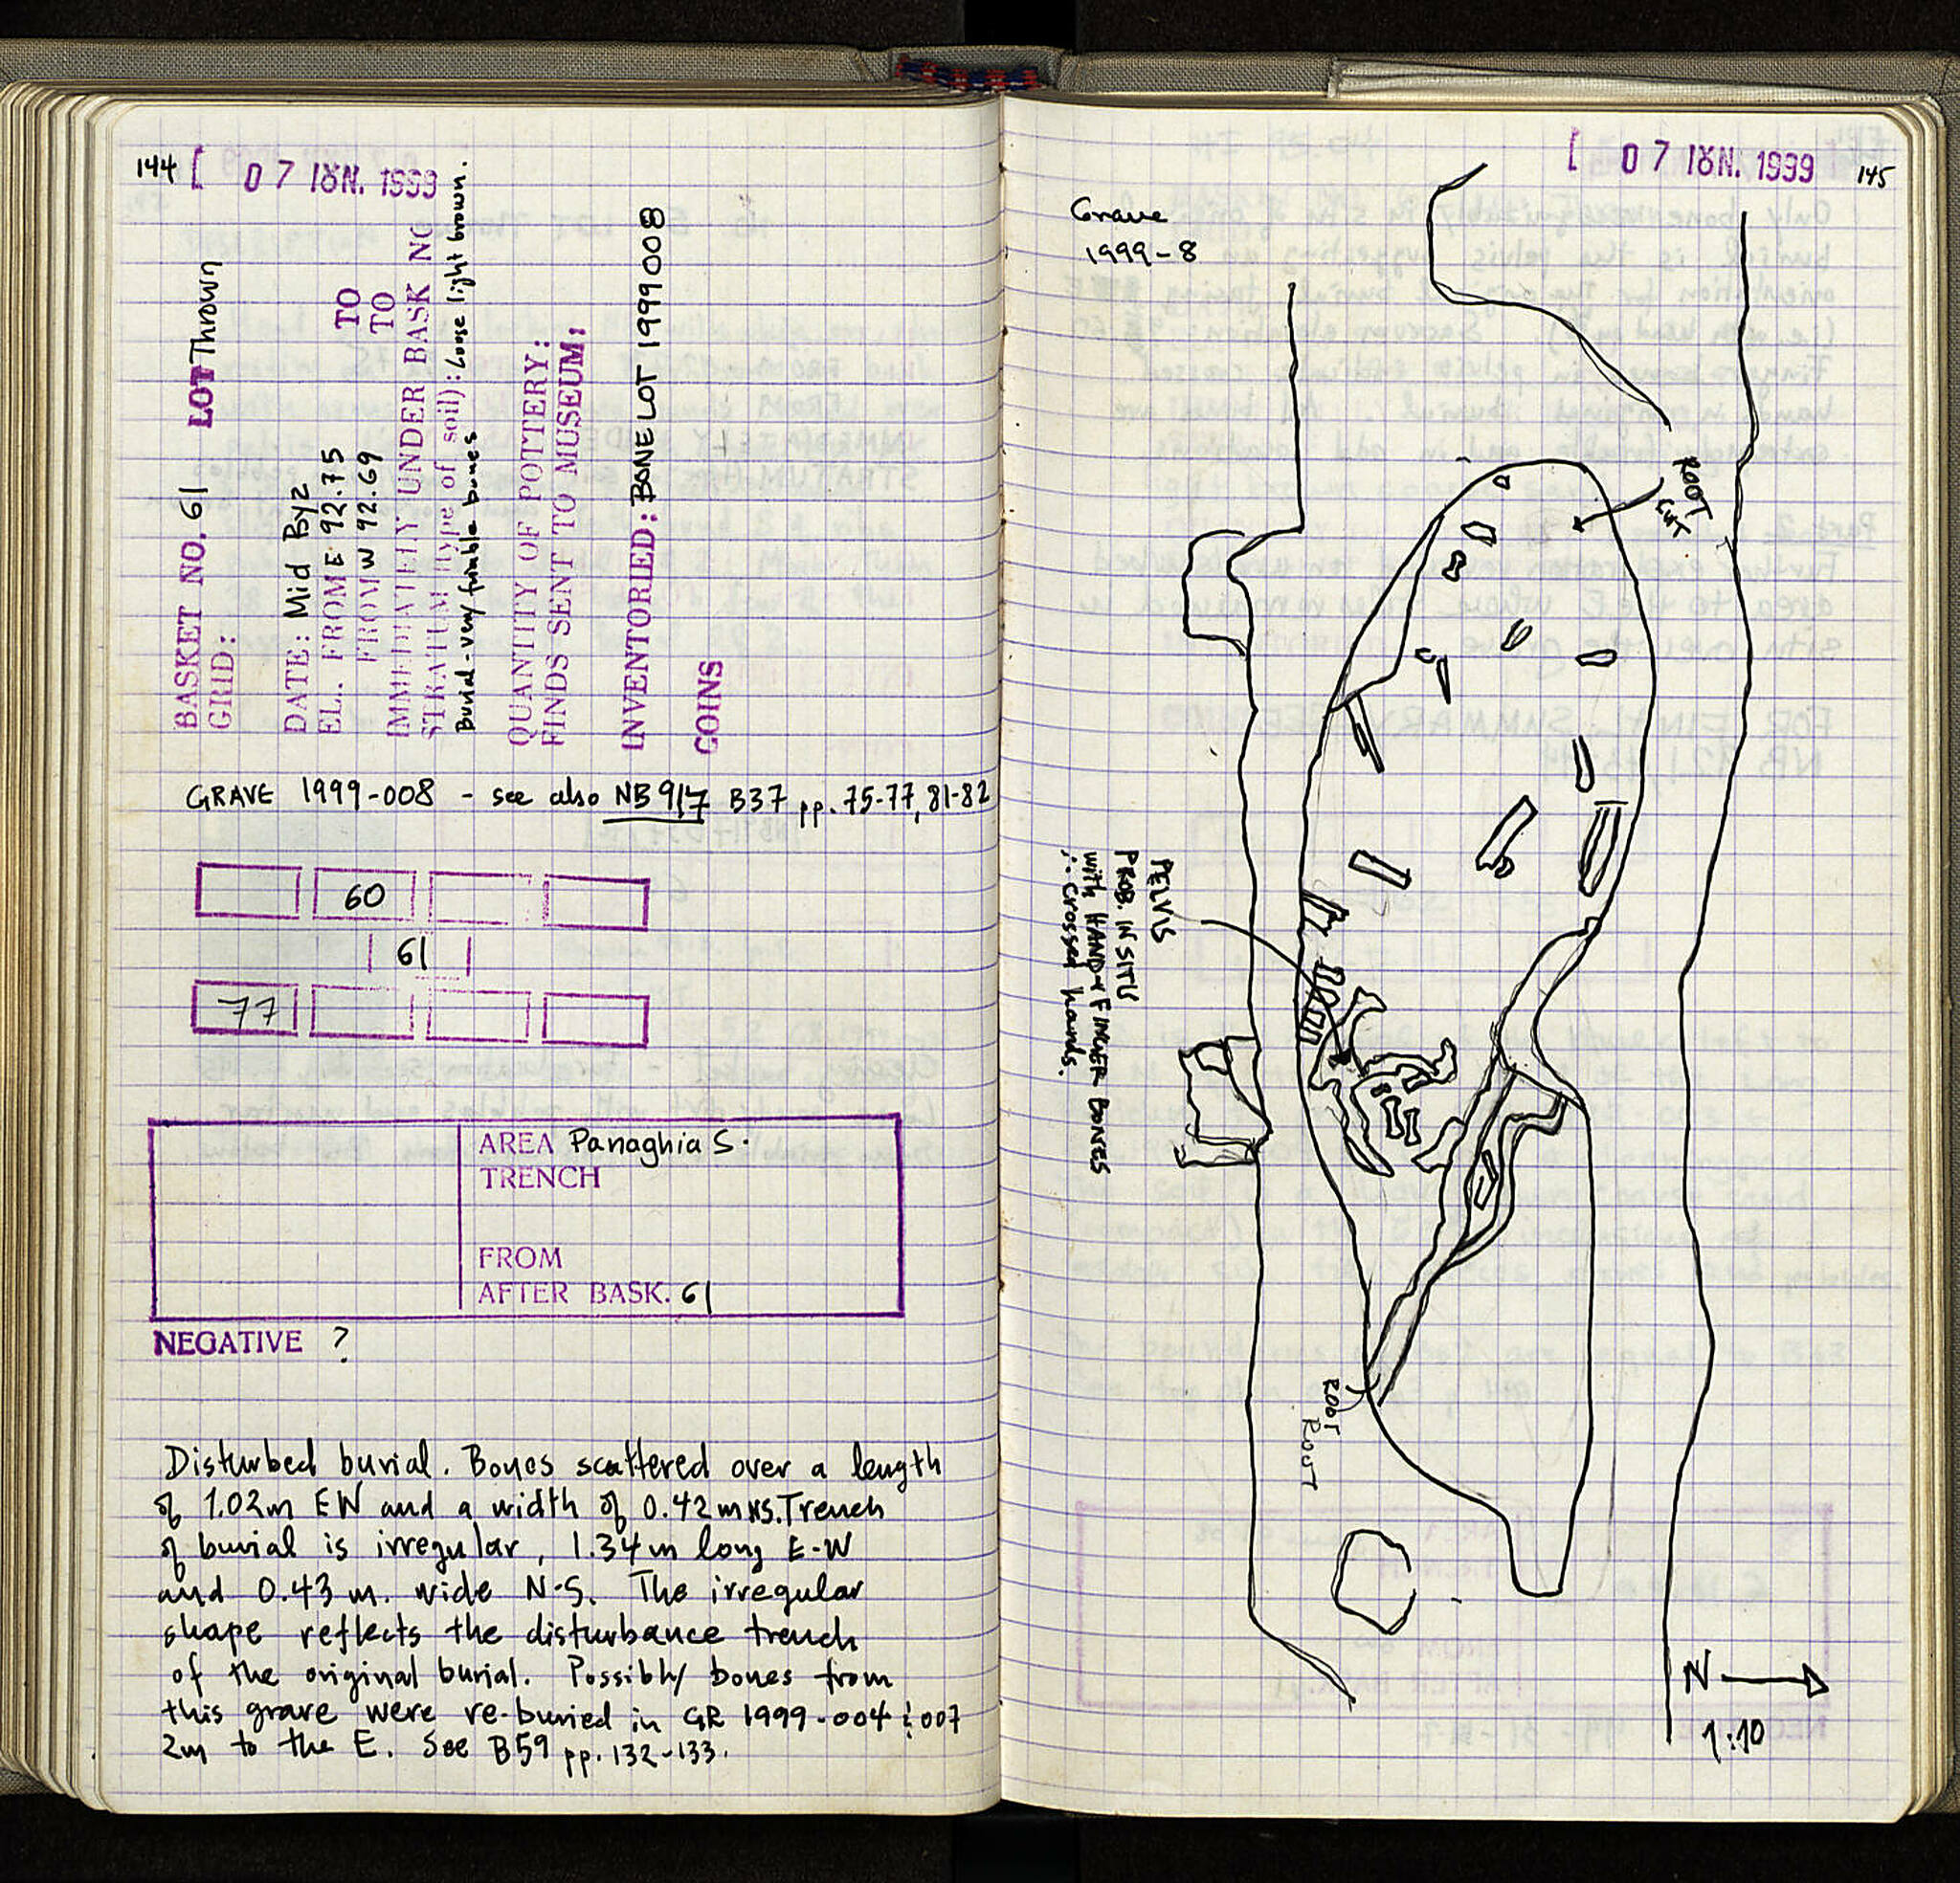 144 [ 07 ΙΟΥΝ. 1999
BASKET NO. 61 LOT Thrown
GRID:
DATE: Mid Byz
EL. FROM E 92.75 TO
FROM W 92.69 TO
IMMEDIATELY UNDER BASK NO
STRATUM (type of soil): Loose light brown.
Burial - very friable bones
QUANTITY OF POTTERY:
FINDS SENT TO MUSEUM:
INVENTORIED: BONE LOT 1999 008
COINS
GRAVE 1999-008 - see also NB 917 B37 pp. 75-77, 81-82
60
61
77
AREA Panaghia S.
TRENCH
FROM
AFTER BASK. 61
NEGATIVE ?
Disturbed burial. Bones scattered over a length
of 1.02m EW and a width of 0.42m NS. Trench
of burial is irregular, 1.34m long E-W
and 0.43 m. wide N-S. The irregular
shape reflects the disturbance trench
of the original burial. Possibly bones from
this grave were re-buried in GR 1999-004 & 007
2m to the E. See B59 pp. 132-133.
[ 07 ΙΟΥΝ. 1999 145
Grave
1999-8
ROOT
PELVIS
PROB. IN SITU
with HAND & FINGER BONES
∴ crossed hands.
ROOT
ROOT
N
1:10